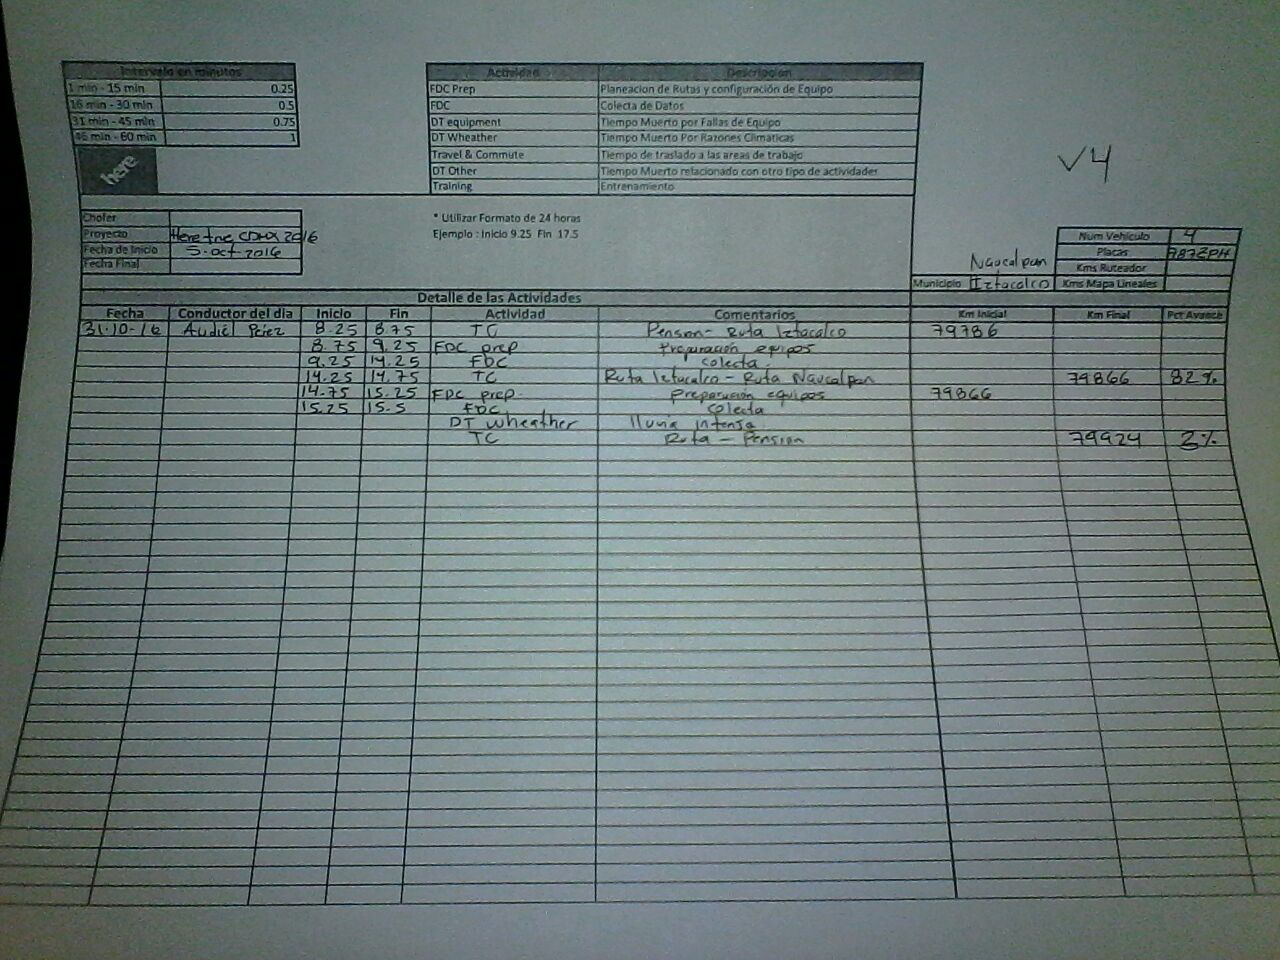 Intervalo en minutos
1 min - 15 min 0.25
16 min - 30 min 0.5
31 min - 45 min 0.75
46 min - 60 min 1
here
Actividad Descripcion
FDC Prep Planeacion de Rutas y configuración de Equipo
FDC Colecta de Datos
DT equipment Tiempo Muerto por Fallas de Equipo
DT Wheather Tiempo Muerto Por Razones Climaticas
Travel & Commute Tiempo de traslado a las areas de trabajo
DT Other Tiempo Muerto relacionado con otro tipo de actividades
Training Entrenamiento
V4
Chofer
Proyecto Here tne CDMX 2016
Fecha de Inicio 5-oct-2016
Fecha Final
* Utilizar Formato de 24 horas
Ejemplo : Inicio 9.25 Fin 17.5
Num Vehiculo 4
Placas
Kms Ruteador
Kms Mapa Lineales
Naucalpan
Municipio Iztacalco
Detalle de las Actividades
Fecha Conductor del dia Inicio Fin Actividad Comentarios Km Inicial Km Final Pct Avance
31-10-16 Audiel 8.25 8.75 TC Pension - Ruta Iztacalco 79786
8.75 9.25 FDC prep Preparación equipos
9.25 14.25 FDC colecta
14.25 14.75 TC Ruta Iztacalco - Ruta Naucalpan 79866 82%
14.75 15.25 FDC prep. preparación equipos 79866
15.25 15.5 FDC colecta
DT wheather lluvia intensa
TC Ruta - Pension 79924 3%